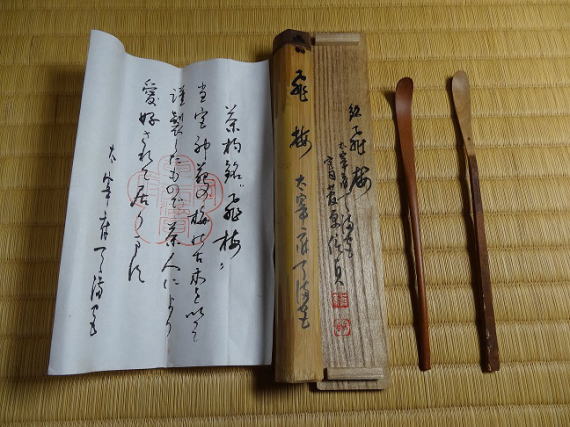 茶杓銘"飛梅"
当宮神苑の梅の古木を以て
謹製したもので茶人により
愛好されて居ります
太宰府天満宮
飛梅 太宰府天満宮
銘 飛梅
太宰府天満宮
宮司
信貞